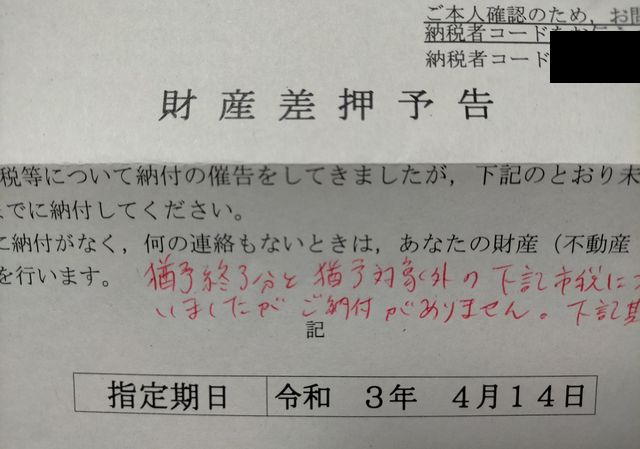 ご本人確認のため，お問
納税者コードをお伝え
納税者コード
財産差押予告
税等について納付の催告をしてきましたが，下記のとおり未
までに納付してください。
に納付がなく，何の連絡もないときは，あなたの財産（不動産
を行います。
猶予終了分と猶予対象外の下記市税に
いましたがご納付がありません。下記
記
指定期日 令和 3年 4月14日